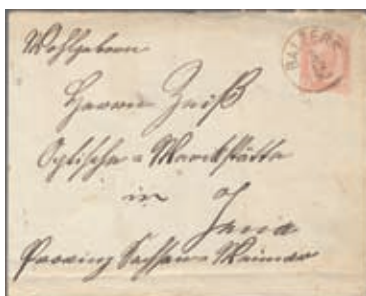 Wohlgeborn
BALZERS
Herrn Zeiß
Optische = Werkstätte
in
Jena
Provinz Sachsen = Weimar